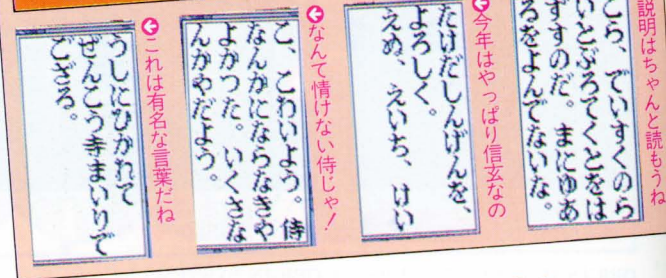 説明はちゃんと読もうね
こら、でいすくのら
いとぷろてくとをは
ずすのだ。まにゆあ
るをよんでないな。
今年はやっぱり信玄なの
たけだしんげんを、
よろしく。
えぬ、えいち、けい
なんて情けない侍じゃ!
こ、こわいよう。侍
なんかにならなきや
よかつた。いくさな
んかやだよう。
これは有名な言葉だね
うしにひかれて
ぜんこう寺まいりで
ござる。